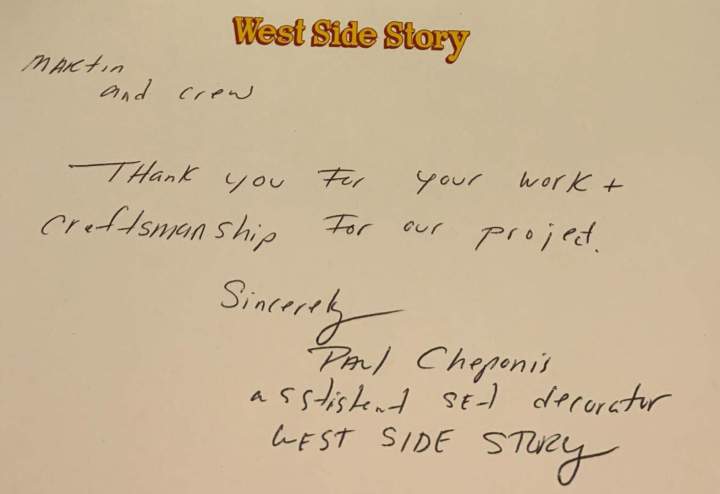 West Side Story
Martin
and crew
THank you For your work +
craftsmanship For our project.
Sincerely
Paul Cheponis
asstistent set decorator
WEST SIDE STORY